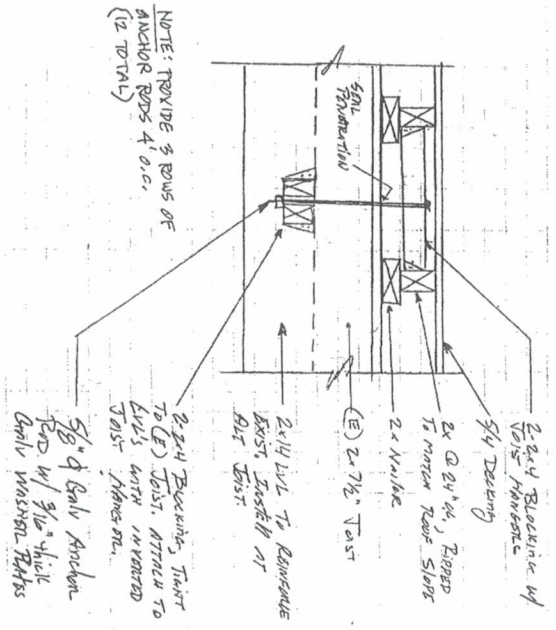 NOTE: PROVIDE 3 ROWS OF
ANCHOR RODS 4' O.C.
(12 TOTAL)
SEAL
PENETRATION
2-2x4 BLOCKING W/
JOIST HANGERS
5/4 DECKING
2x @ 24" OC, RIPPED
TO MATCH ROOF SLOPE
2x NAILER
(E) 2x7½" JOIST
2x14 LVL TO REINFORCE
EXIST. INSTALL AT
ALT JOIST.
2-2x4 BLOCKING, TIGHT
TO (E) JOIST. ATTACH TO
LVL'S WITH INVERTED
JOIST HANGER.
5/8" Φ GALV ANCHOR
ROD W/ 3/16" THICK
GALV WASHER PLATES